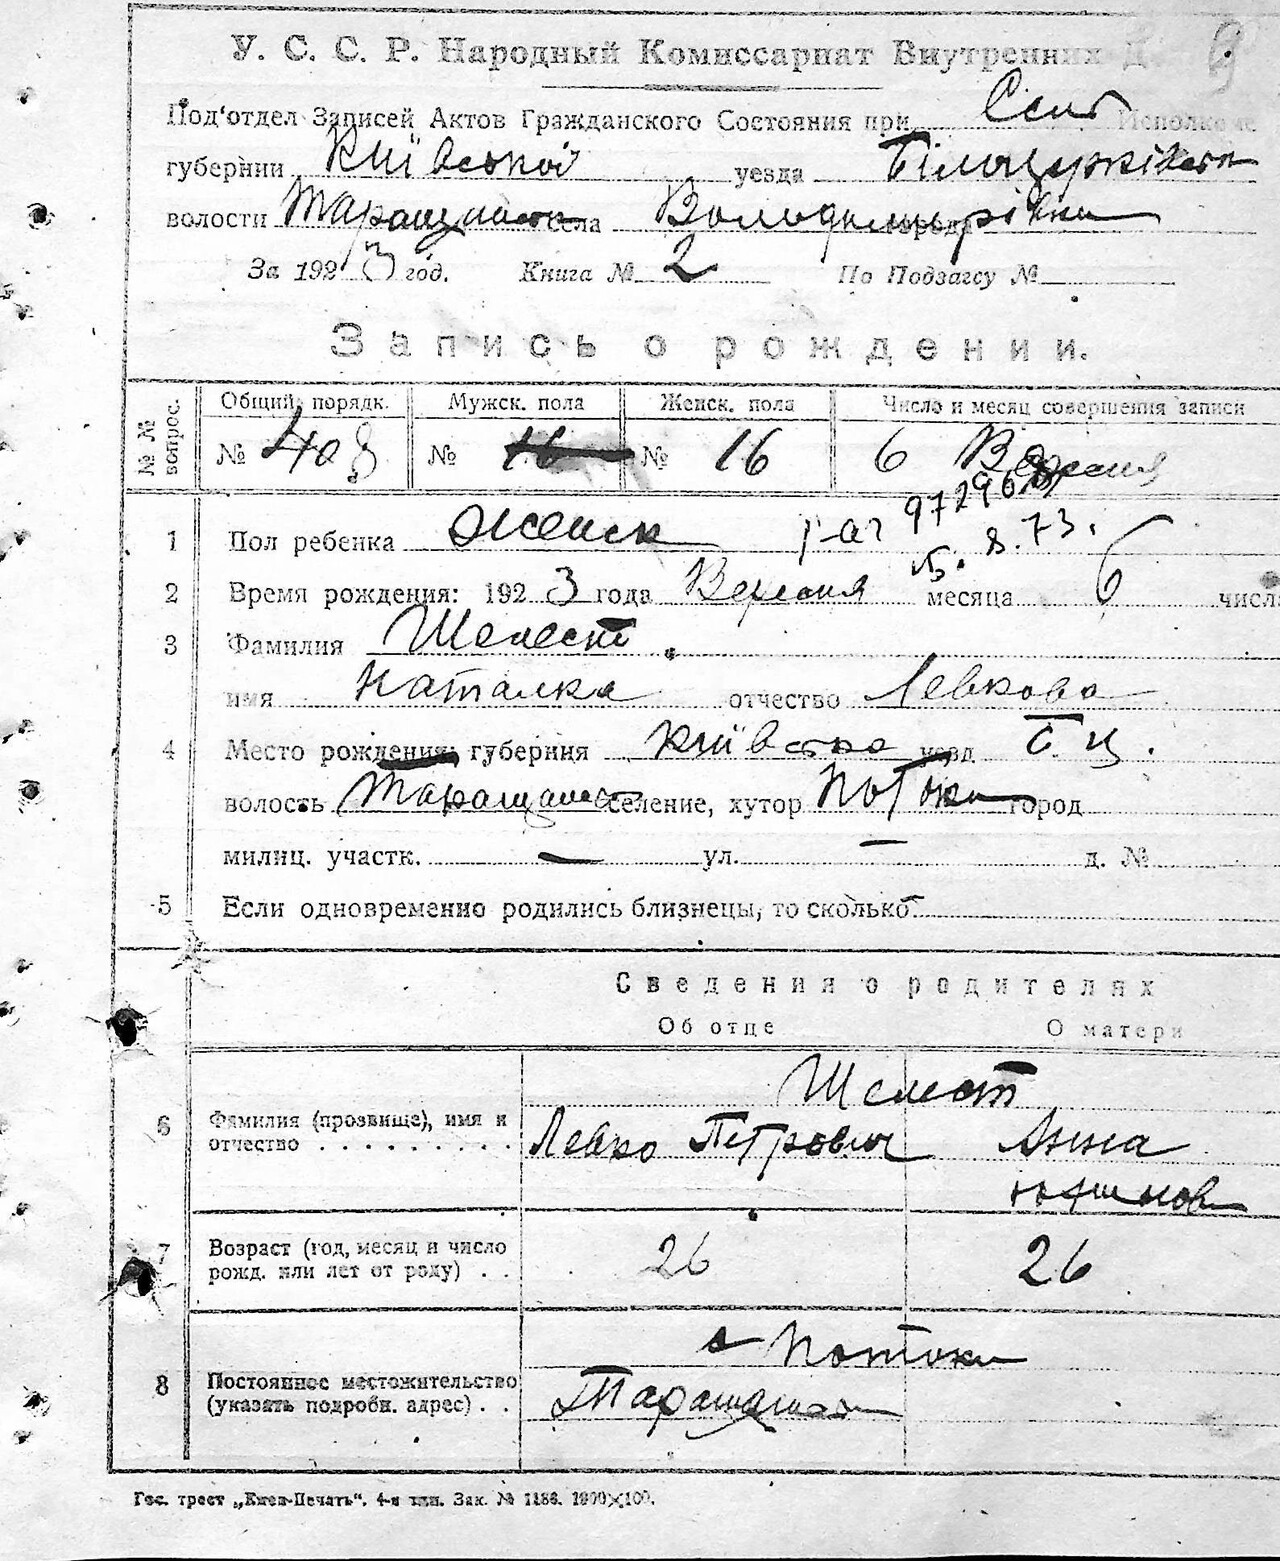 У. С. С. Р. Народный Комиссариат Внутренних Д
Под'отдел Записей Актов Гражданского Состояния при Исполкоме
губернии Київської уезда
волости села Володимирівки города
За 1923 год. Книга № 2 По Подзагсу №
Запись о рождении.
№ № вопрос. Общий порядк. Мужск. пола Женск. пола Число и месяц совершения записи
№ 408 № 16 № 16 6 Вересня
1 Пол ребенка Женск
5. 8. 73.
2 Время рождения: 1923 года Вересня месяца 6 числа
3 Фамилия Шелест
имя Наталка отчество Левкова
4 Место рождения: губерния Київська уезд Б Ц.
волость селение, хутор Потоки город
милиц. участк. — ул. — д. №
5 Если одновременно родились близнецы, то сколько —
Сведения о родителях
Об отце О матери
Шелест
6 Фамилия (прозвище), имя и отчество . . . . . . . . . Левко Петрович Анна
7 Возраст (год, месяц и число рожд. или лет от роду) . . 26 26
с Потоки
8 Постоянное местожительство (указать подробн. адрес) . .
Гос. трест „Киев-Печать“. 4-я тип. Зак. № 1186. 1000×100.